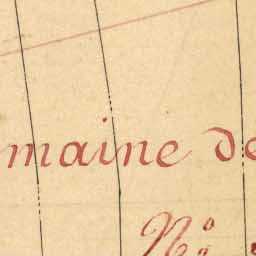 maine de
N°